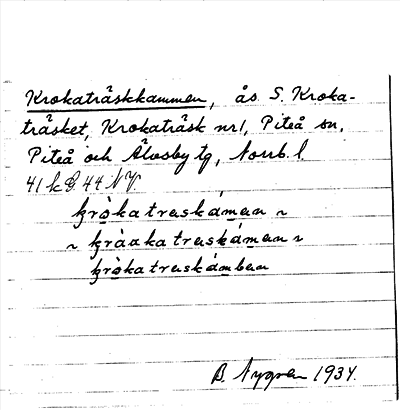 Krokaträskkammen, ås S. Kroka-
träsket, Krokaträsk nr 1, Piteå sn,
Piteå och Älvsby tg, Norrb. l.
41 k
kròka traskámen ~
~ kràaka traskámen ~
kròka traskámben
B. Nygren 1934.